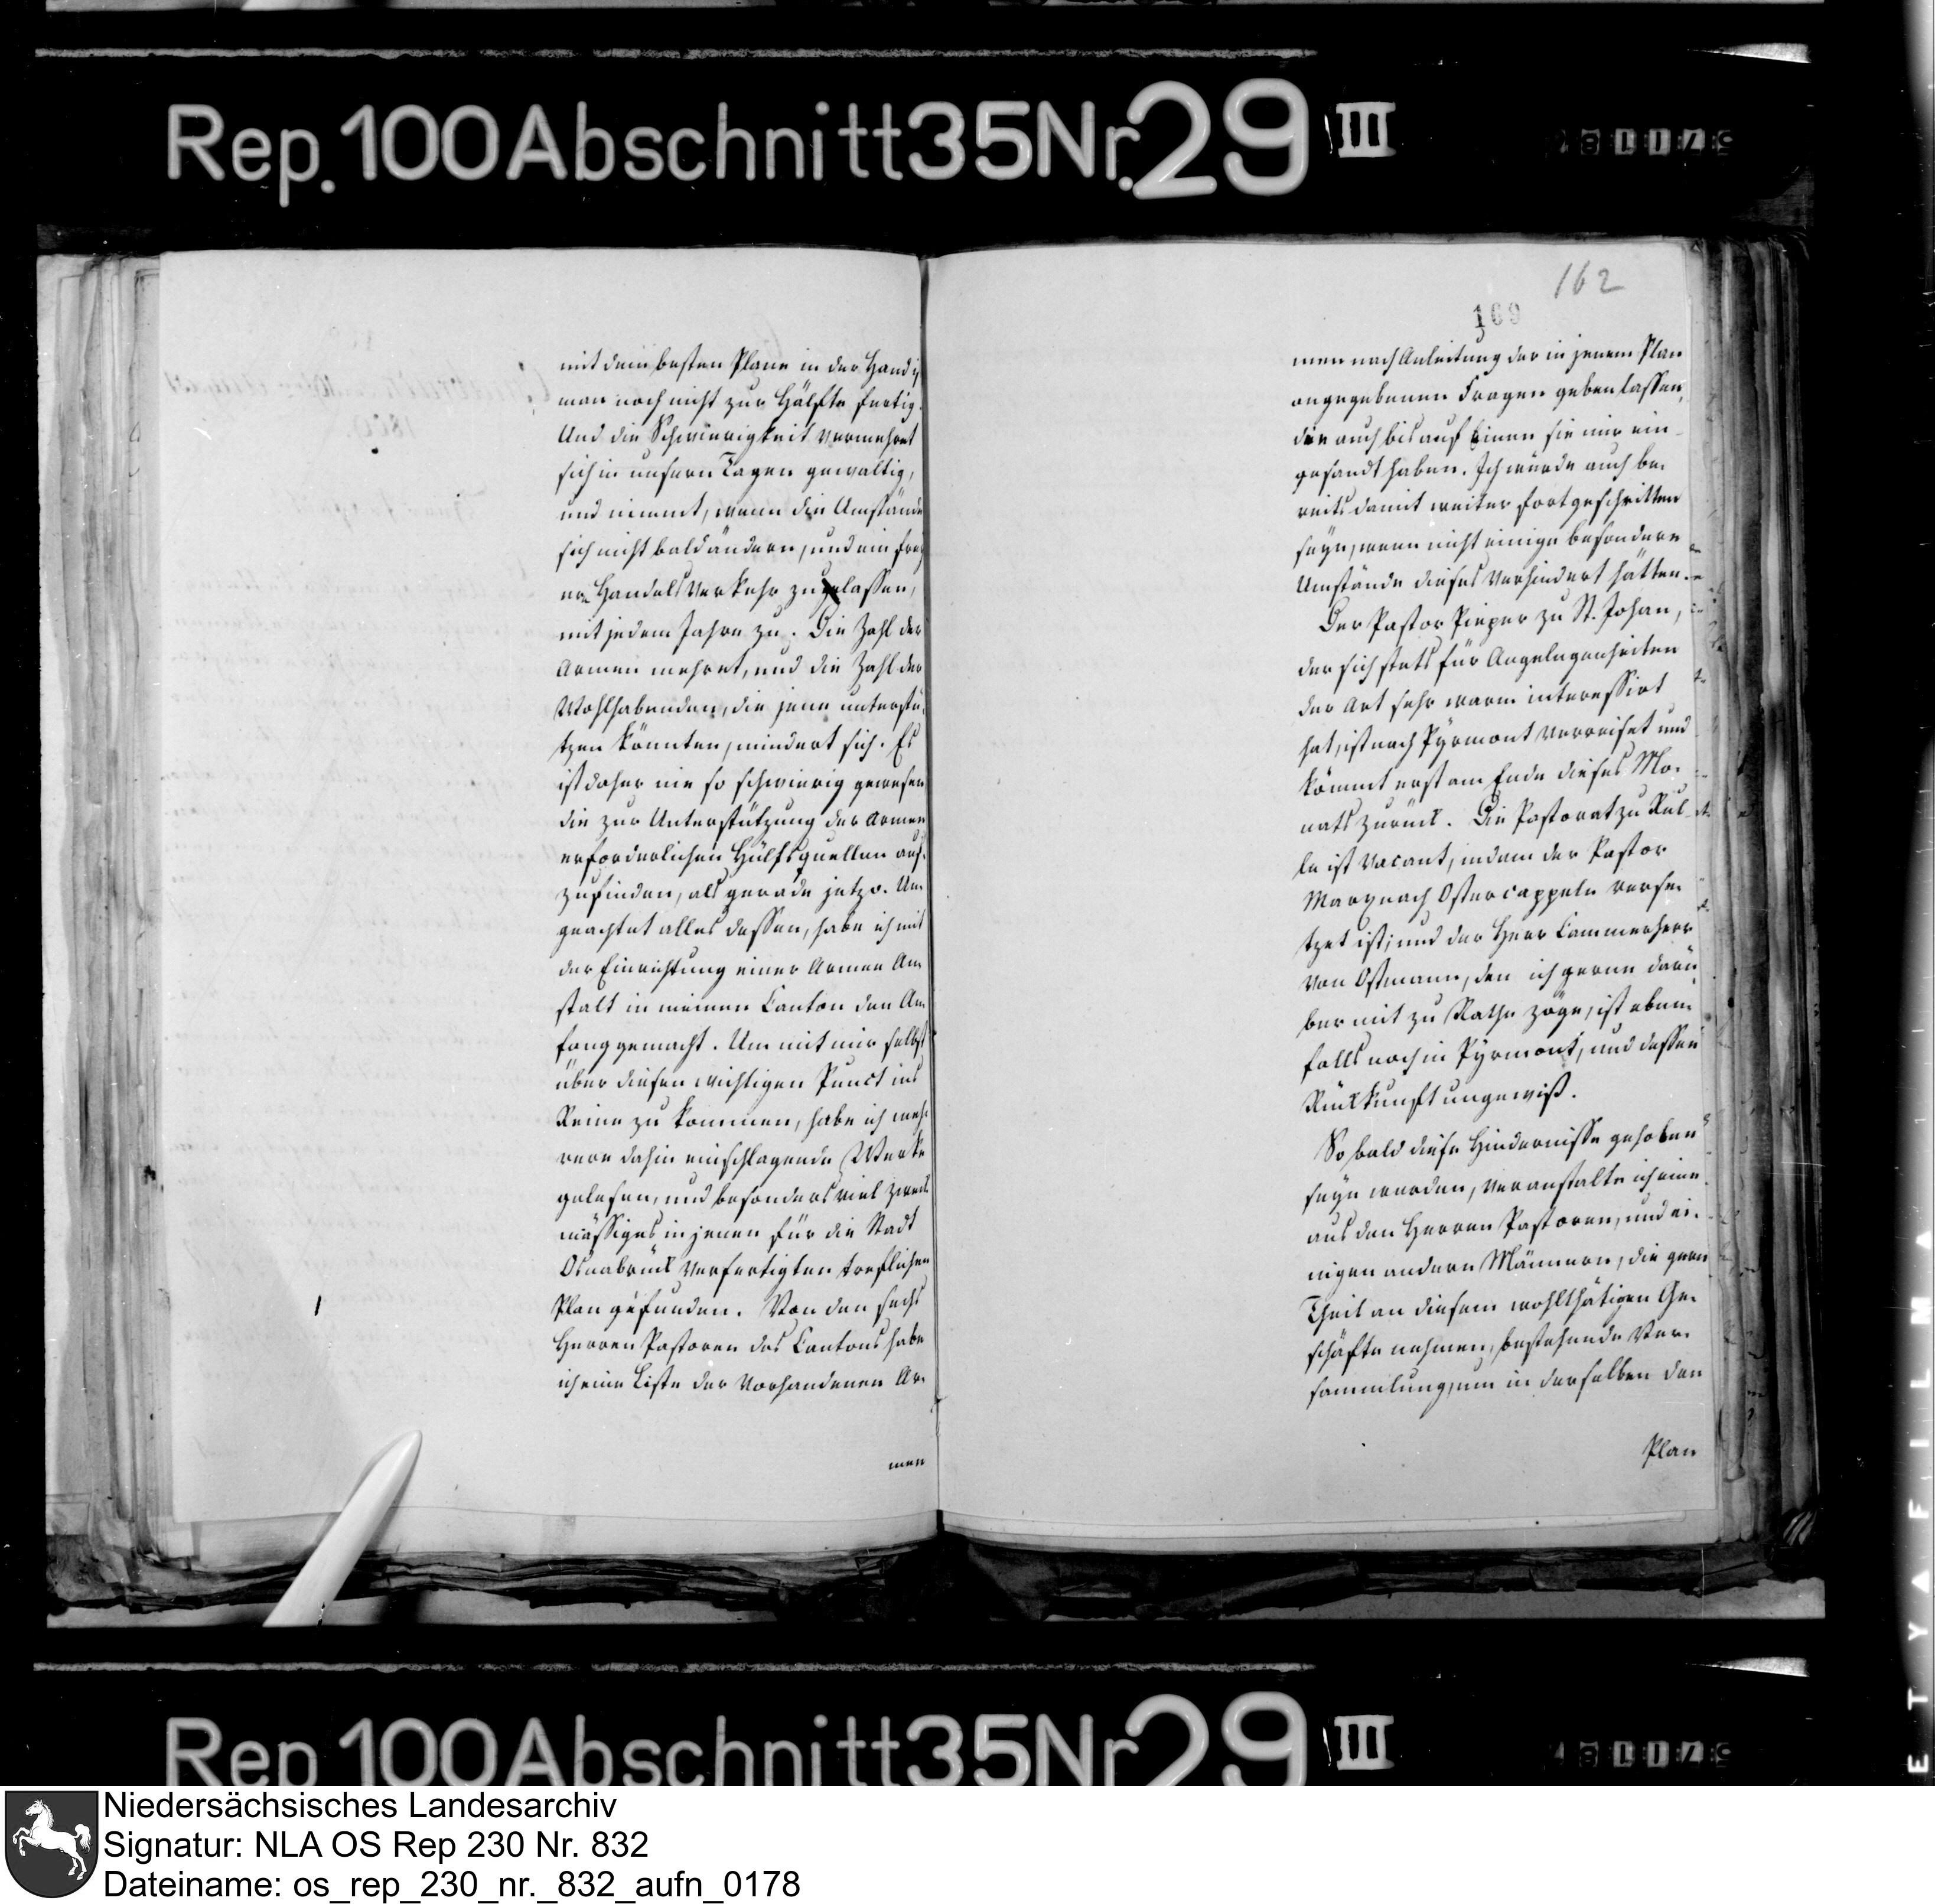 Rep. 100 Abschnitt 35 Nr. 29 III
mit dem besten Plane in der Hand
man noch nicht zur Hälfte fertig.
Und die Schwierigkeit vermehret
sich in unsern Tagen gewaltig,
und nimmt, wenn die Umstände
sich nicht bald ändern, und ein frey
er Handels Verkehr zugelassen,
mit jedem Jahre zu. Die Zahl der
Armen mehret, und die Zahl der
Wohlhabenden, die jene unterstü-
tzen könnten, mindert sich. Es
ist daher nie so schwierig gewesen
die zur Unterstützung der Armen
erforderlichen Hülfsquellen auf-
zufinden, als gerade jetzo. Un-
geachtet alles dessen, habe ich mit
der Einrichtung einer Armen An-
stalt in meinem Canton den An-
fang gemacht. Um mit mir selbst
über diesen wichtigen Punct ins
Reine zu kommen, habe ich meh-
rere dahin einschlagende Werke
gelesen, und besonders viel zweck
mässiges in jenem für die Stadt
Osnabrück verfertigten treflichen
Plan gefunden. Von den sechs
Herren Pastoren des Cantons habe
ich eine Liste der vorhandenen Ar-
men
162
169
men nach Anleitung der in jenem Plan
angegebenen Fragen geben lassen,
die auch bis auf Einen sie mir ein-
gesandt haben. Ich würde auch be-
reits damit weiter fortgeschritten
seyn, wenn nicht einige besondere
Umstände dieses verhindert hätten.
Der Pastor Pieper zu St. Johan,
der sich stets für Angelegenheiten
der Art sehr warm interessirt
hat, ist nach Pyrmont verreiset und
kömmt erst am Ende dieses Mo-
nats zurück. Die Pastorat zu Rul-
le ist vacant, indem der Pastor
Marx nach Ostercappeln verse-
tzet ist; und der Herr Cammerherr
von Ostmann, den ich gerne darü-
ber mit zu Rathe zöge, ist eben-
falls noch in Pyrmont, und dessen
Rückkunft ungewiß.
So bald diese Hindernisse gehoben
seyn werden, veranstalte ich eine
aus den Herren Pastoren, und ei-
nigen andern Männern, die gern
Theil an diesem wohlthätigen Ge-
schäfte nehmen, bestehende Ver-
sammlung, um in derselben den
Plan
Rep 100 Abschnitt 35 Nr 29 III
ETYAFILMA
Niedersächsisches Landesarchiv
Signatur: NLA OS Rep 230 Nr. 832
Dateiname: os_rep_230_nr._832_aufn_0178